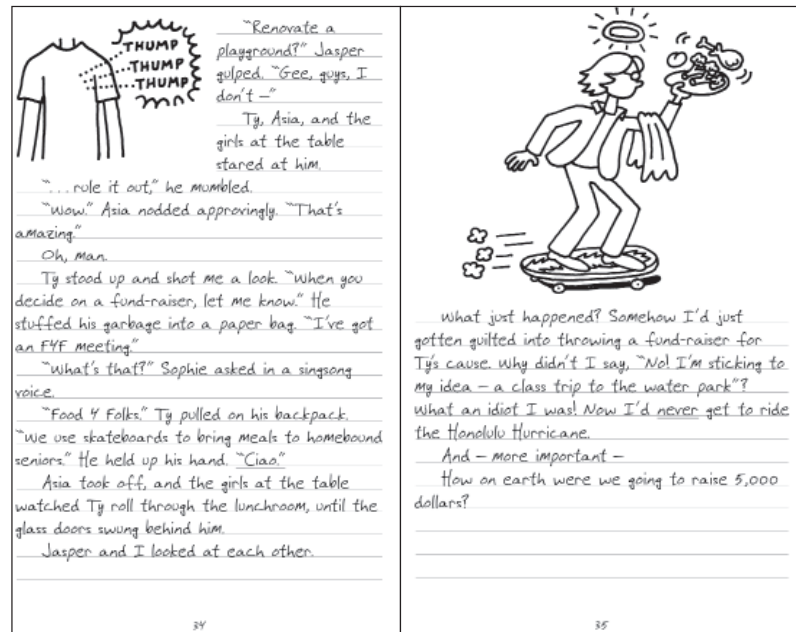 THUMP
THUMP
THUMP
"Renovate a
playground?" Jasper
gulped. "Gee, guys, I
don't –"
Ty, Asia, and the
girls at the table
stared at him.
"...rule it out," he mumbled.
"Wow." Asia nodded approvingly. "That's
amazing."
Oh, man.
Ty stood up and shot me a look. "When you
decide on a fund-raiser, let me know." He
stuffed his garbage into a paper bag. "I've got
an F4F meeting."
"What's that?" Sophie asked in a singsong
voice.
"Food 4 Folks." Ty pulled on his backpack.
"We use skateboards to bring meals to homebound
seniors." He held up his hand. "Ciao."
Asia took off, and the girls at the table
watched Ty roll through the lunchroom, until the
glass doors swung behind him.
Jasper and I looked at each other.
34
What just happened? Somehow I'd just
gotten guilted into throwing a fund-raiser for
Ty's cause. Why didn't I say, "No! I'm sticking to
my idea – a class trip to the water park"?
What an idiot I was! Now I'd never get to ride
the Honolulu Hurricane.
And – more important –
How on earth were we going to raise 5,000
dollars?
35